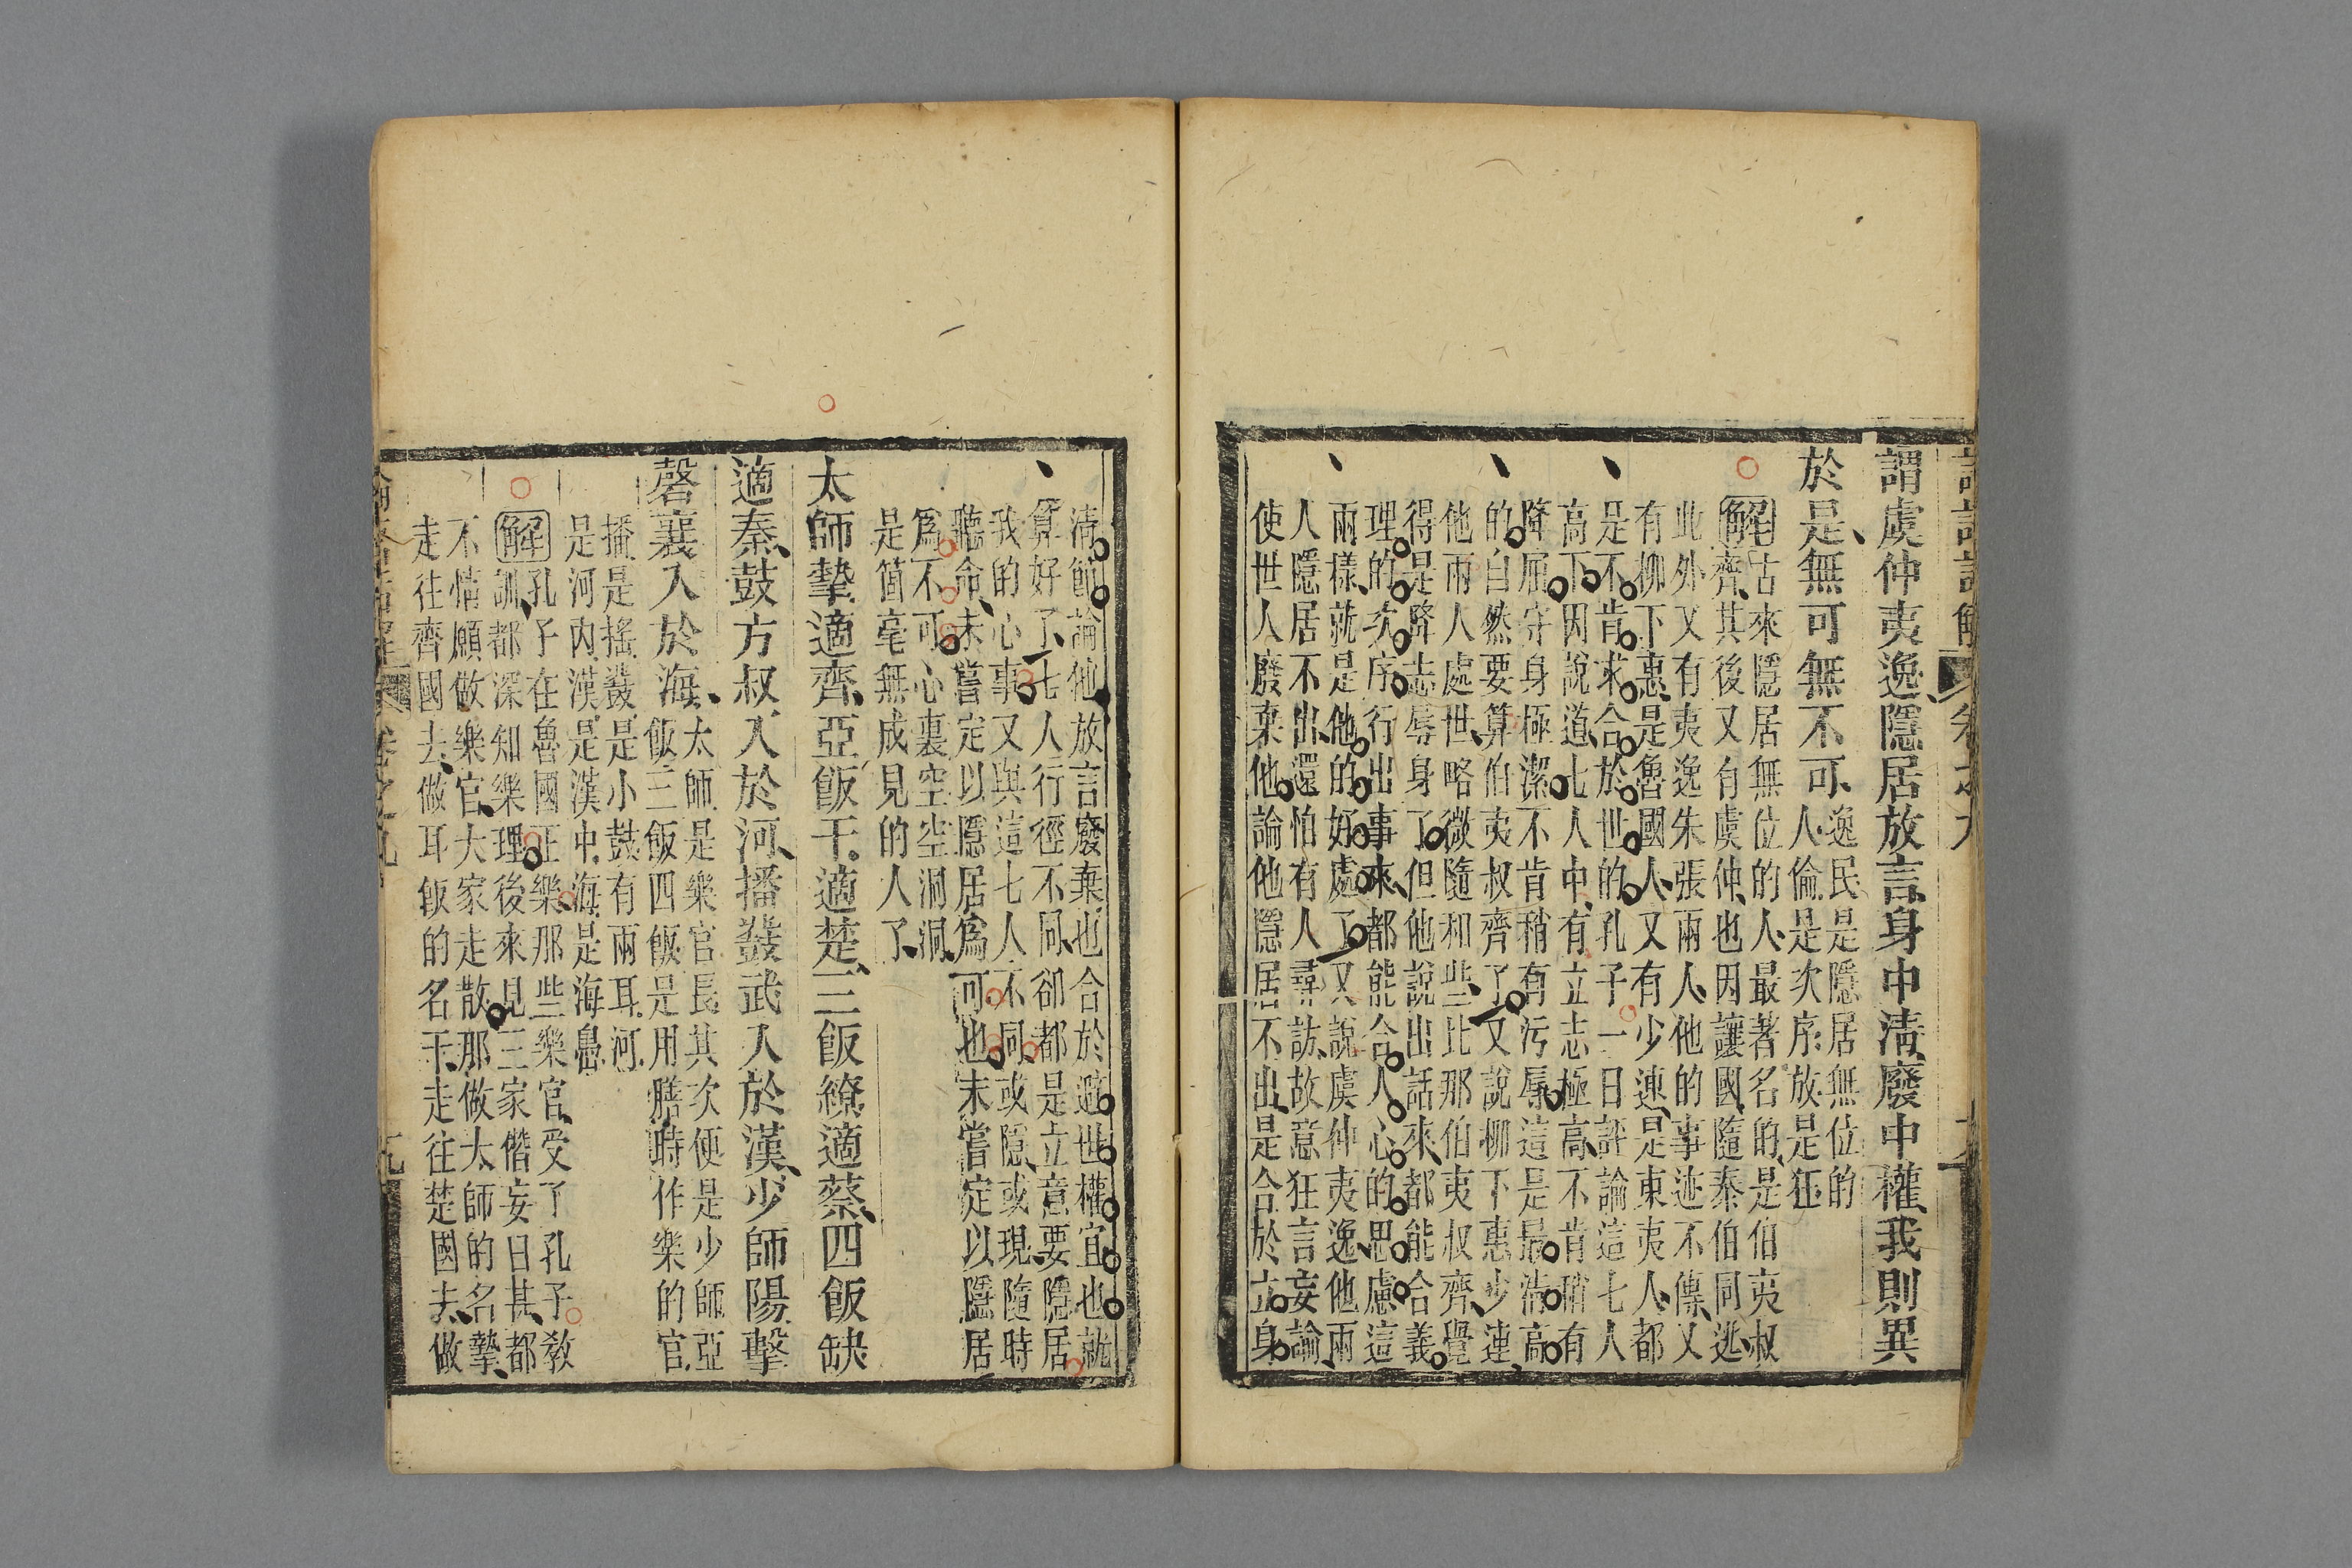 謂虞仲夷逸隱居放言身中淸廢中權我則異
於是無可無不可
逸民是隱居無位的
人倫是次序放是狂
解
古來隱居無位的人最著名的是伯夷叔
齊其後又有虞仲也因讓國隨泰伯同逃
此外又有夷逸朱張兩人他的事迹不傳又
有柳下惠是魯國人又有少連是東夷人都
是不肯求合於世的孔子一日評論這七人
高下因說道七人中有立志極高不肯稍有
降屈守身極潔不肯稍有污辱這是最淸高
的自然要算伯夷叔齊了又說柳下惠少連
他兩人處世略微隨和些比那伯夷叔齊覺
得是降志辱身了但他說出話來都能合義
理的次序行出事來都能合人心的思慮這
兩樣就是他的好處了又說虞仲夷逸他兩
人隱居不出還怕有人尋訪故意狂言妄論
使世人廢棄他論他隱居不出是合於立身
淸節論他放言廢棄也合於避世權宜也就
算好了七人行徑不同卻都是立意要隱居
我的心事又與這七人不同或隱或現隨時
聽命未嘗定以隱居爲可也未嘗定以隱居
爲不可心裏空空洞洞
是箇毫無成見的人了
太師摯適齊亞飯干適楚三飯繚適蔡四飯缺
適秦鼓方叔入於河播鼗武入於漢少師陽擊
磬襄入於海
太師是樂官長其次便是少師亞
飯三飯四飯是用膳時作樂的官
播是搖鼗是小鼓有兩耳河
是河內漢是漢中海是海島
解
孔子在魯國正樂那些樂官受了孔子敎
訓都深知樂理後來見三家僭妄日甚都
不情願做樂官大家走散那做太師的名摯
走往齊國去做亞飯的名干走往楚國去做